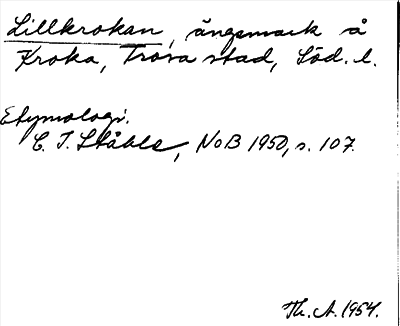 Lillkrokan, ängsmark å
Kroka, Trosa stad, Söd. l.
Etymologi.
C. I. Ståhle, NoB 1950, s. 107.
Th. A. 1954.